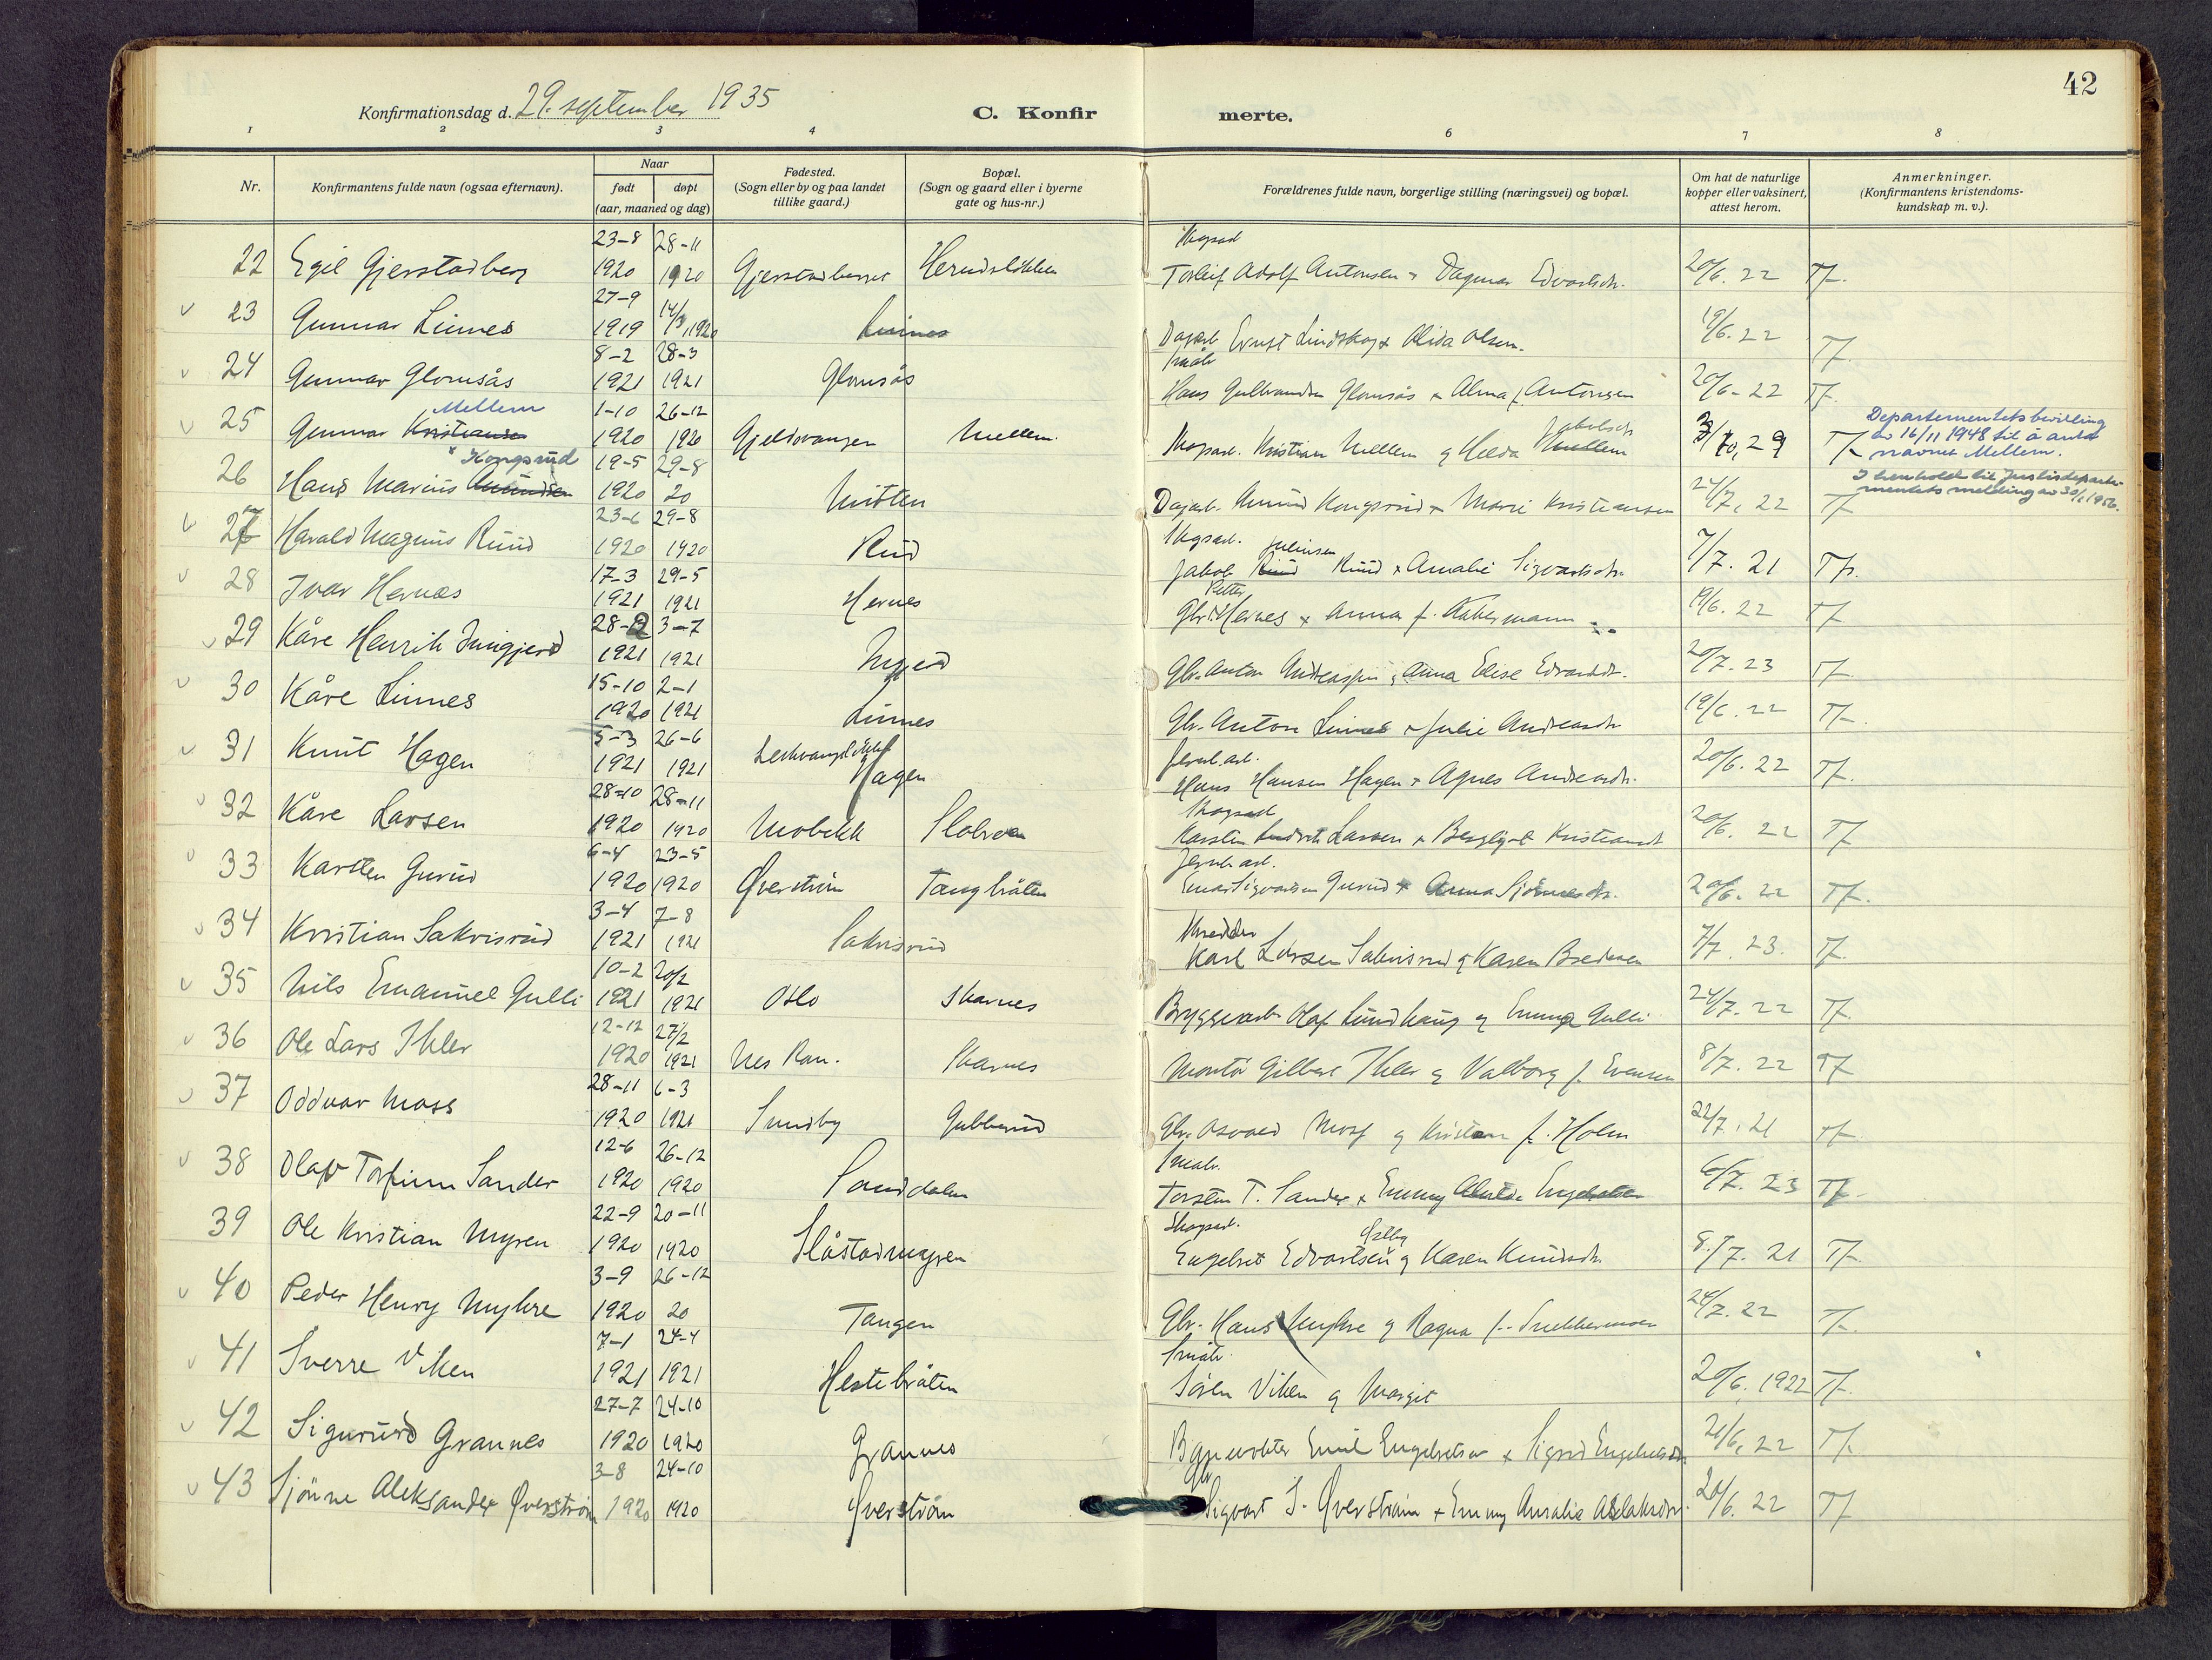 42
Konfirmationsdag d. 29. september 1935
C. Konfirmerte.
1 2 3 4 6 7 8
Nr.
Konfirmantens fulde navn (ogsaa efternavn).
Naar
født døpt
(aar, maaned og dag)
Fødested.
(Sogn eller by og paa landet
tillike gaard.)
Bopæl.
(Sogn og gaard eller i byerne
gate og hus-nr.)
Forældrenes fulde navn, borgerlige stilling (næringsvei) og bopæl.
Om hat de naturlige
kopper eller vaksinert,
attest herom.
Anmerkninger.
(Konfirmantens kristendoms-
kundskap m. v.).
23-8 28-11
22 Egil Gjerstadberg 1920 1920 Torleif Adolf Antonsen & Dagmar Edvartsdr. 20/6. 22 Tf.
27-9 14/3
23 Gunnar Linnes 1919 1920 Linnes Ernst Lindskog & Alida Olsen. 19/6. 22 Tf.
8-2 28-3
24 Gunnar Glomsås 1921 1921 Glomsås Hans Gulbrandsen Glomsås & Alma f. Antonsen 20/6-22 Tf.
Mellem 1-10 26-12
25 Gunnar Kristiansen 1920 1920 Gjeldvangen Mellem. Skogsarb. Kristian Mellem og Hilda Mellem Jakobsdr 3/10, 29 Tf
Departementets bevilling
av 16/11 1948 til å anta
navnet Mellem.
Kongsrud 19-5 29-8
26 Hans Marius Amundsen 1920 20 Moten Dagarb. Amund Kongsrud & Marie Kristiansen 24/7, 22 Tf
I henhold til Justisdeparte-
mentets melding av 30/1 1956.
23-6 29-8
27 Harald Magnus Ruud 1920 1920 Rud Skogsarb. Jakob Juliusen Ruud & Amalie Sigvartsdr. 7/7. 21 Tf.
17-3 29-5
28 Ivar Hernes 1921 1921 Hernes Gbr. Petter Hernes & Anna f. Kabermann 19/6. 22 Tf
28-2 3-7
29 Kåre Henrik 1921 1921 Gbr. Anton & Anna Elise Edvardsdr. 20/7. 23 Tf
15-10 2-1
30 Kåre Linnes 1920 1921 Linnes Gbr. Anton Linnes & Julie Andreasdr 19/6. 22 Tf.
5-3 26-6
31 Knut Hagen 1921 1921 Hagen Jernb.arb. Hans Hansen Hagen & Agnes Andreasdr. 20/6. 22 Tf.
28-10 28-11
32 Kåre Larsen 1920 1920 Mobekk Slobraaten Skogsarb Karsten Ludvik Larsen & Bergljot Kristiansdr 20/6. 22 Tf
6-4 23-5
33 Karsten Gurud 1920 1920 Øverstrøm Tangbråten Jernb.arb. Einar Sigvartsen Gurud & Anna Sjønnesdr. 20/6. 22 Tf.
3-4 7-8
34 Kristian Sakrisrud 1921 1921 Sakrisrud Skredder Karl Larsen Sakrisrud & Karen Bredesen 7/7. 23. Tf.
10-2 20/2
35 Nils Emanuel Gulli 1921 1921 Oslo Skarnes Bryggearb. Olaf Lundhaug og Emma Gulli 24/7. 22 Tf.
12-12 27/2
36 Ole Lars Ihler 1920 1921 Nes Rom. Skarnes Montør Gilbert Ihler og Valborg f. Evensen 8/7. 22 Tf
28-11 6-3
37 Oddvar Moss 1920 1921 Sundby Gubberud Gbr. Osvald Moss og Kristine f. Holm 22/7. 21 Tf
12-6 26-12
38 Olav Torfinn Sander 1920 1920 Sanddalen Småbr. Torstein T. Sander & Emmy Engebretsen 6/7. 23 Tf.
22-9 20-11
39 Ole Kristian Myren 1920 1920 Slåstadmyren Skogsarb. Engebret Edvartsen Østby og Karen Knudsdr. 8/7. 21 Tf.
3-9 26-12
40 Peder Henry Myhre 1920 20 Tangen Gbr. Hans Myhre og Ragna f. Snekkermoen 24/7. 22 Tf.
7-1 24-4
41 Sverre Viken 1921 1921 Hestebråten Småbr. Søren Viken og Margit 20/6. 1922 Tf.
27-7 24-10
42 Sigurd Grannes 1920 1920 Grannes Banevokter Emil Engebretsen & Sigrid Engebretsdr. 21/6, 22 Tf.
3-8 24-10
43 Sjønne Aleksander Øverstrøm 1920 1920 Øverstrøm Gbr. Sigvart S. Øverstrøm & Emmy Amalie Aslaksdr. 20/6. 22 Tf